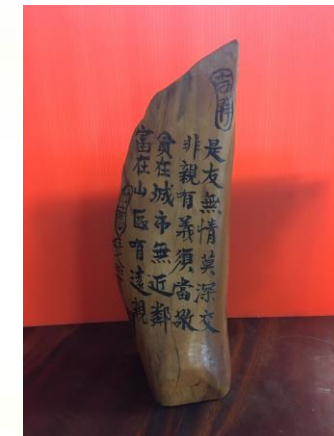 是友無情莫深交
非親有義須當敬
貧在城市無近鄰
富在山區有遠親